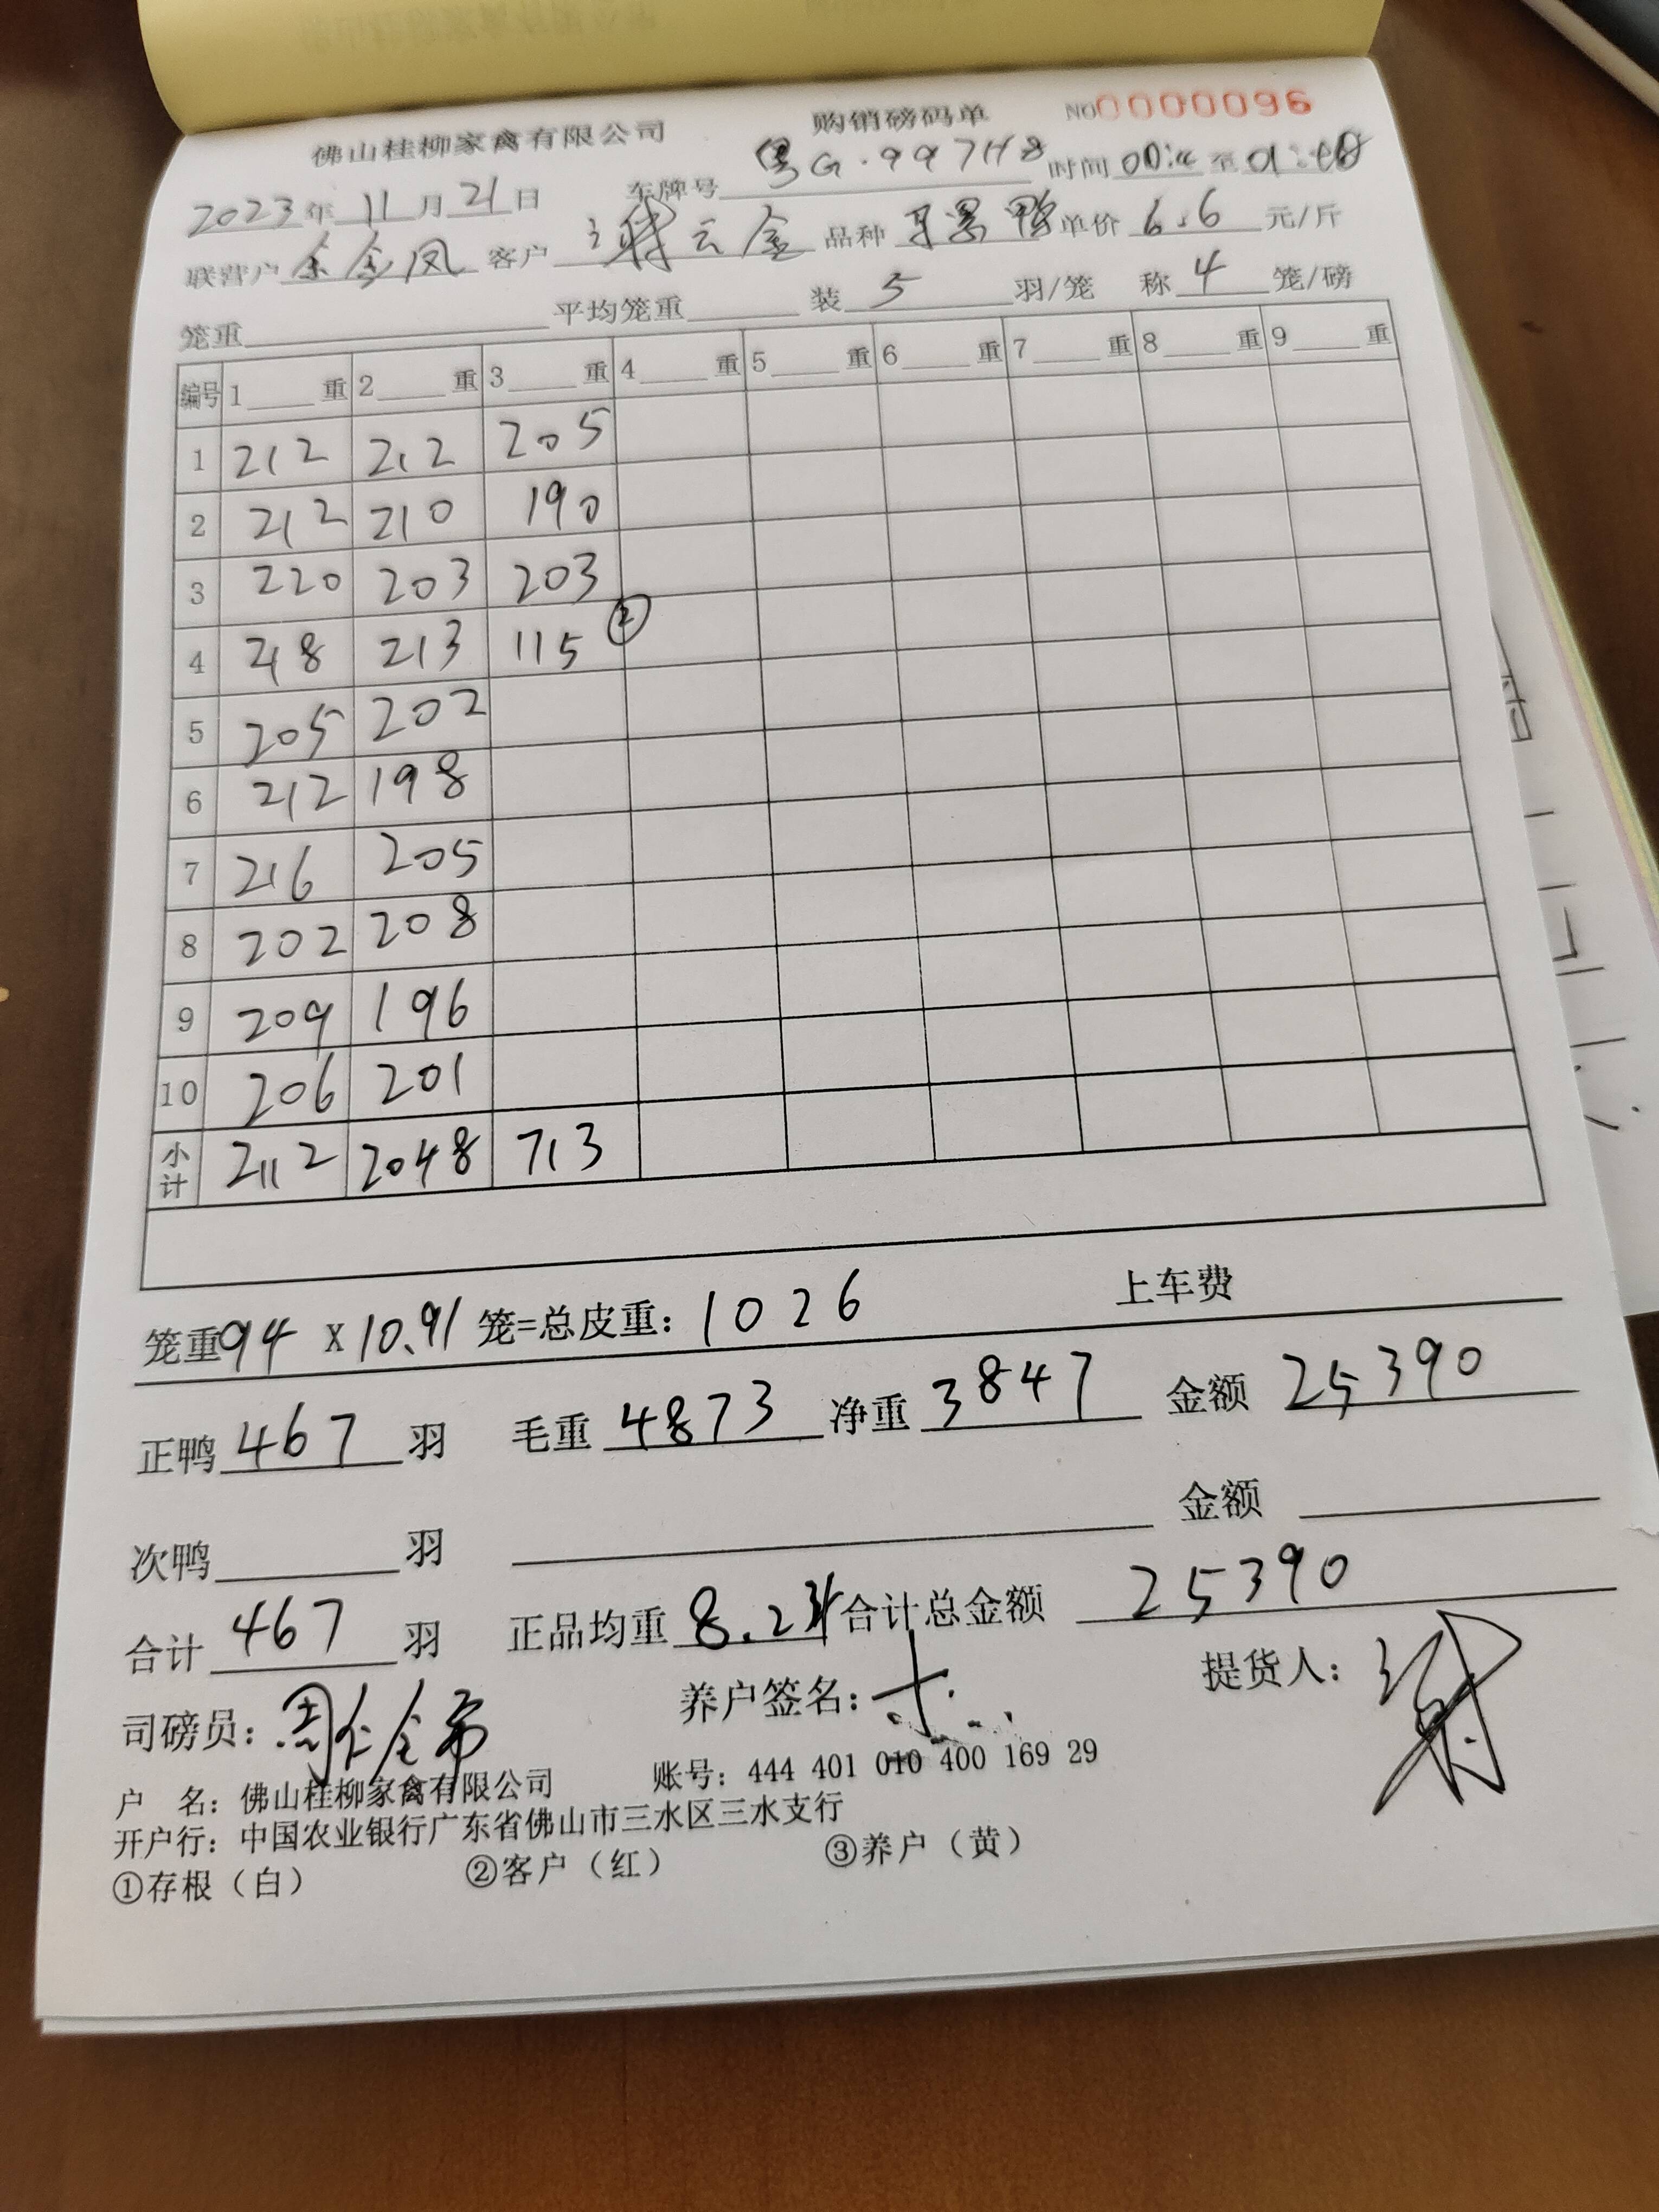 佛山桂柳家禽有限公司 购销磅码单 NO 0000096
2023年 11月 21日 车牌号 G·997H8 时间 00: 至 01:
联营户 余金凤 客户 谢云金 品种 鸭 单价 6.6 元/斤
笼重 平均笼重 装 5 羽/笼 称 4 笼/磅
编号 1 重 2 重 3 重 4 重 5 重 6 重 7 重 8 重 9 重
1 212 212 205
2 212 210 190
3 220 203 203
4 218 213 115 ②
5 205 202
6 212 198
7 216 205
8 202 208
9 209 196
10 206 201
小计 2112 2048 713
笼重 94 X 10.91 笼=总皮重: 1026 上车费
正鸭 467 羽 毛重 4873 净重 3847 金额 25390
次鸭 羽 金额
合计 467 羽 正品均重 8.24 合计总金额 25390
司磅员: 养户签名: 提货人:
户 名: 佛山桂柳家禽有限公司 账号: 444 401 010 400 169 29
开户行: 中国农业银行广东省佛山市三水区三水支行
①存根（白） ②客户（红） ③养户（黄）